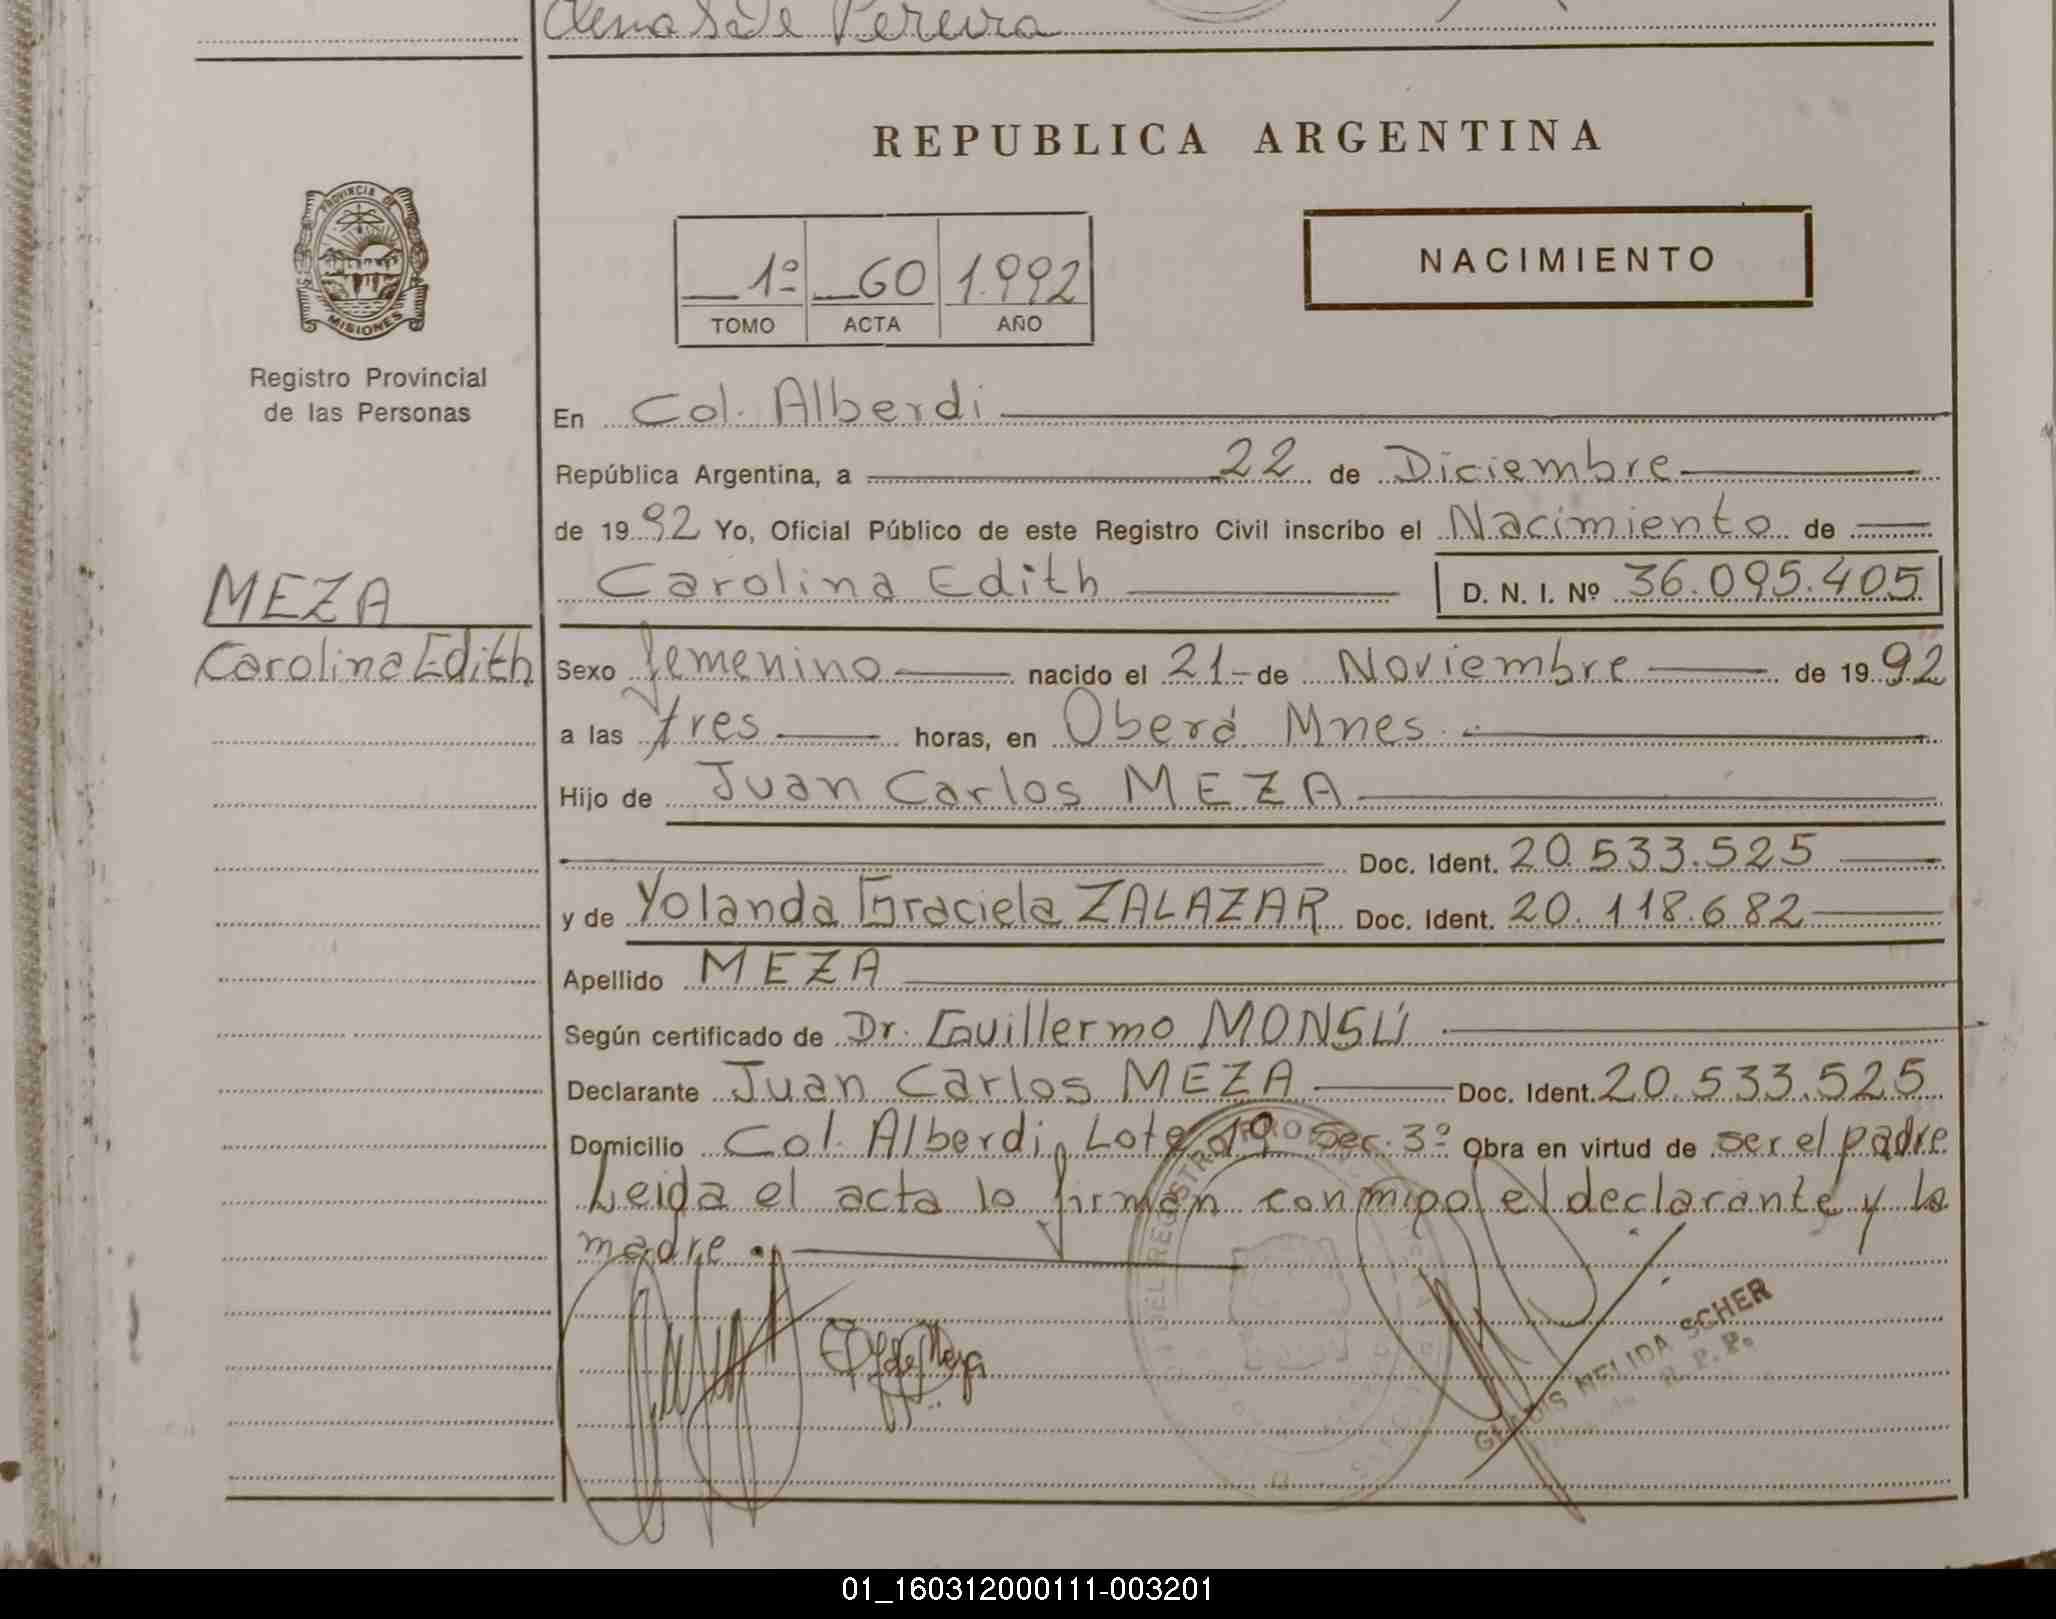 de Pereira
REPUBLICA ARGENTINA
PROVINCIA DE
MISIONES
Registro Provincial
de las Personas
1º 60 1.992
TOMO ACTA AÑO
NACIMIENTO
En Col. Alberdi
República Argentina, a 22 de Diciembre
de 1992 Yo, Oficial Público de este Registro Civil inscribo el Nacimiento de
Carolina Edith D. N. I. Nº 36.095.405
MEZA
Carolina Edith
Sexo femenino nacido el 21 de Noviembre de 1992
a las tres horas, en Oberá Mnes.
Hijo de Juan Carlos MEZA
Doc. Ident. 20.533.525
y de Yolanda Graciela ZALAZAR Doc. Ident. 20.118.682
Apellido MEZA
Según certificado de Dr. Guillermo MONSÚ
Declarante Juan Carlos MEZA Doc. Ident. 20.533.525
Domicilio Col. Alberdi, Lote 19 Sec. 3º Obra en virtud de ser el padre
Leida el acta lo firman conmigo el declarante y la
madre.
de Meza
NELIDA SCHER
R. P. P.
01_160312000111-003201